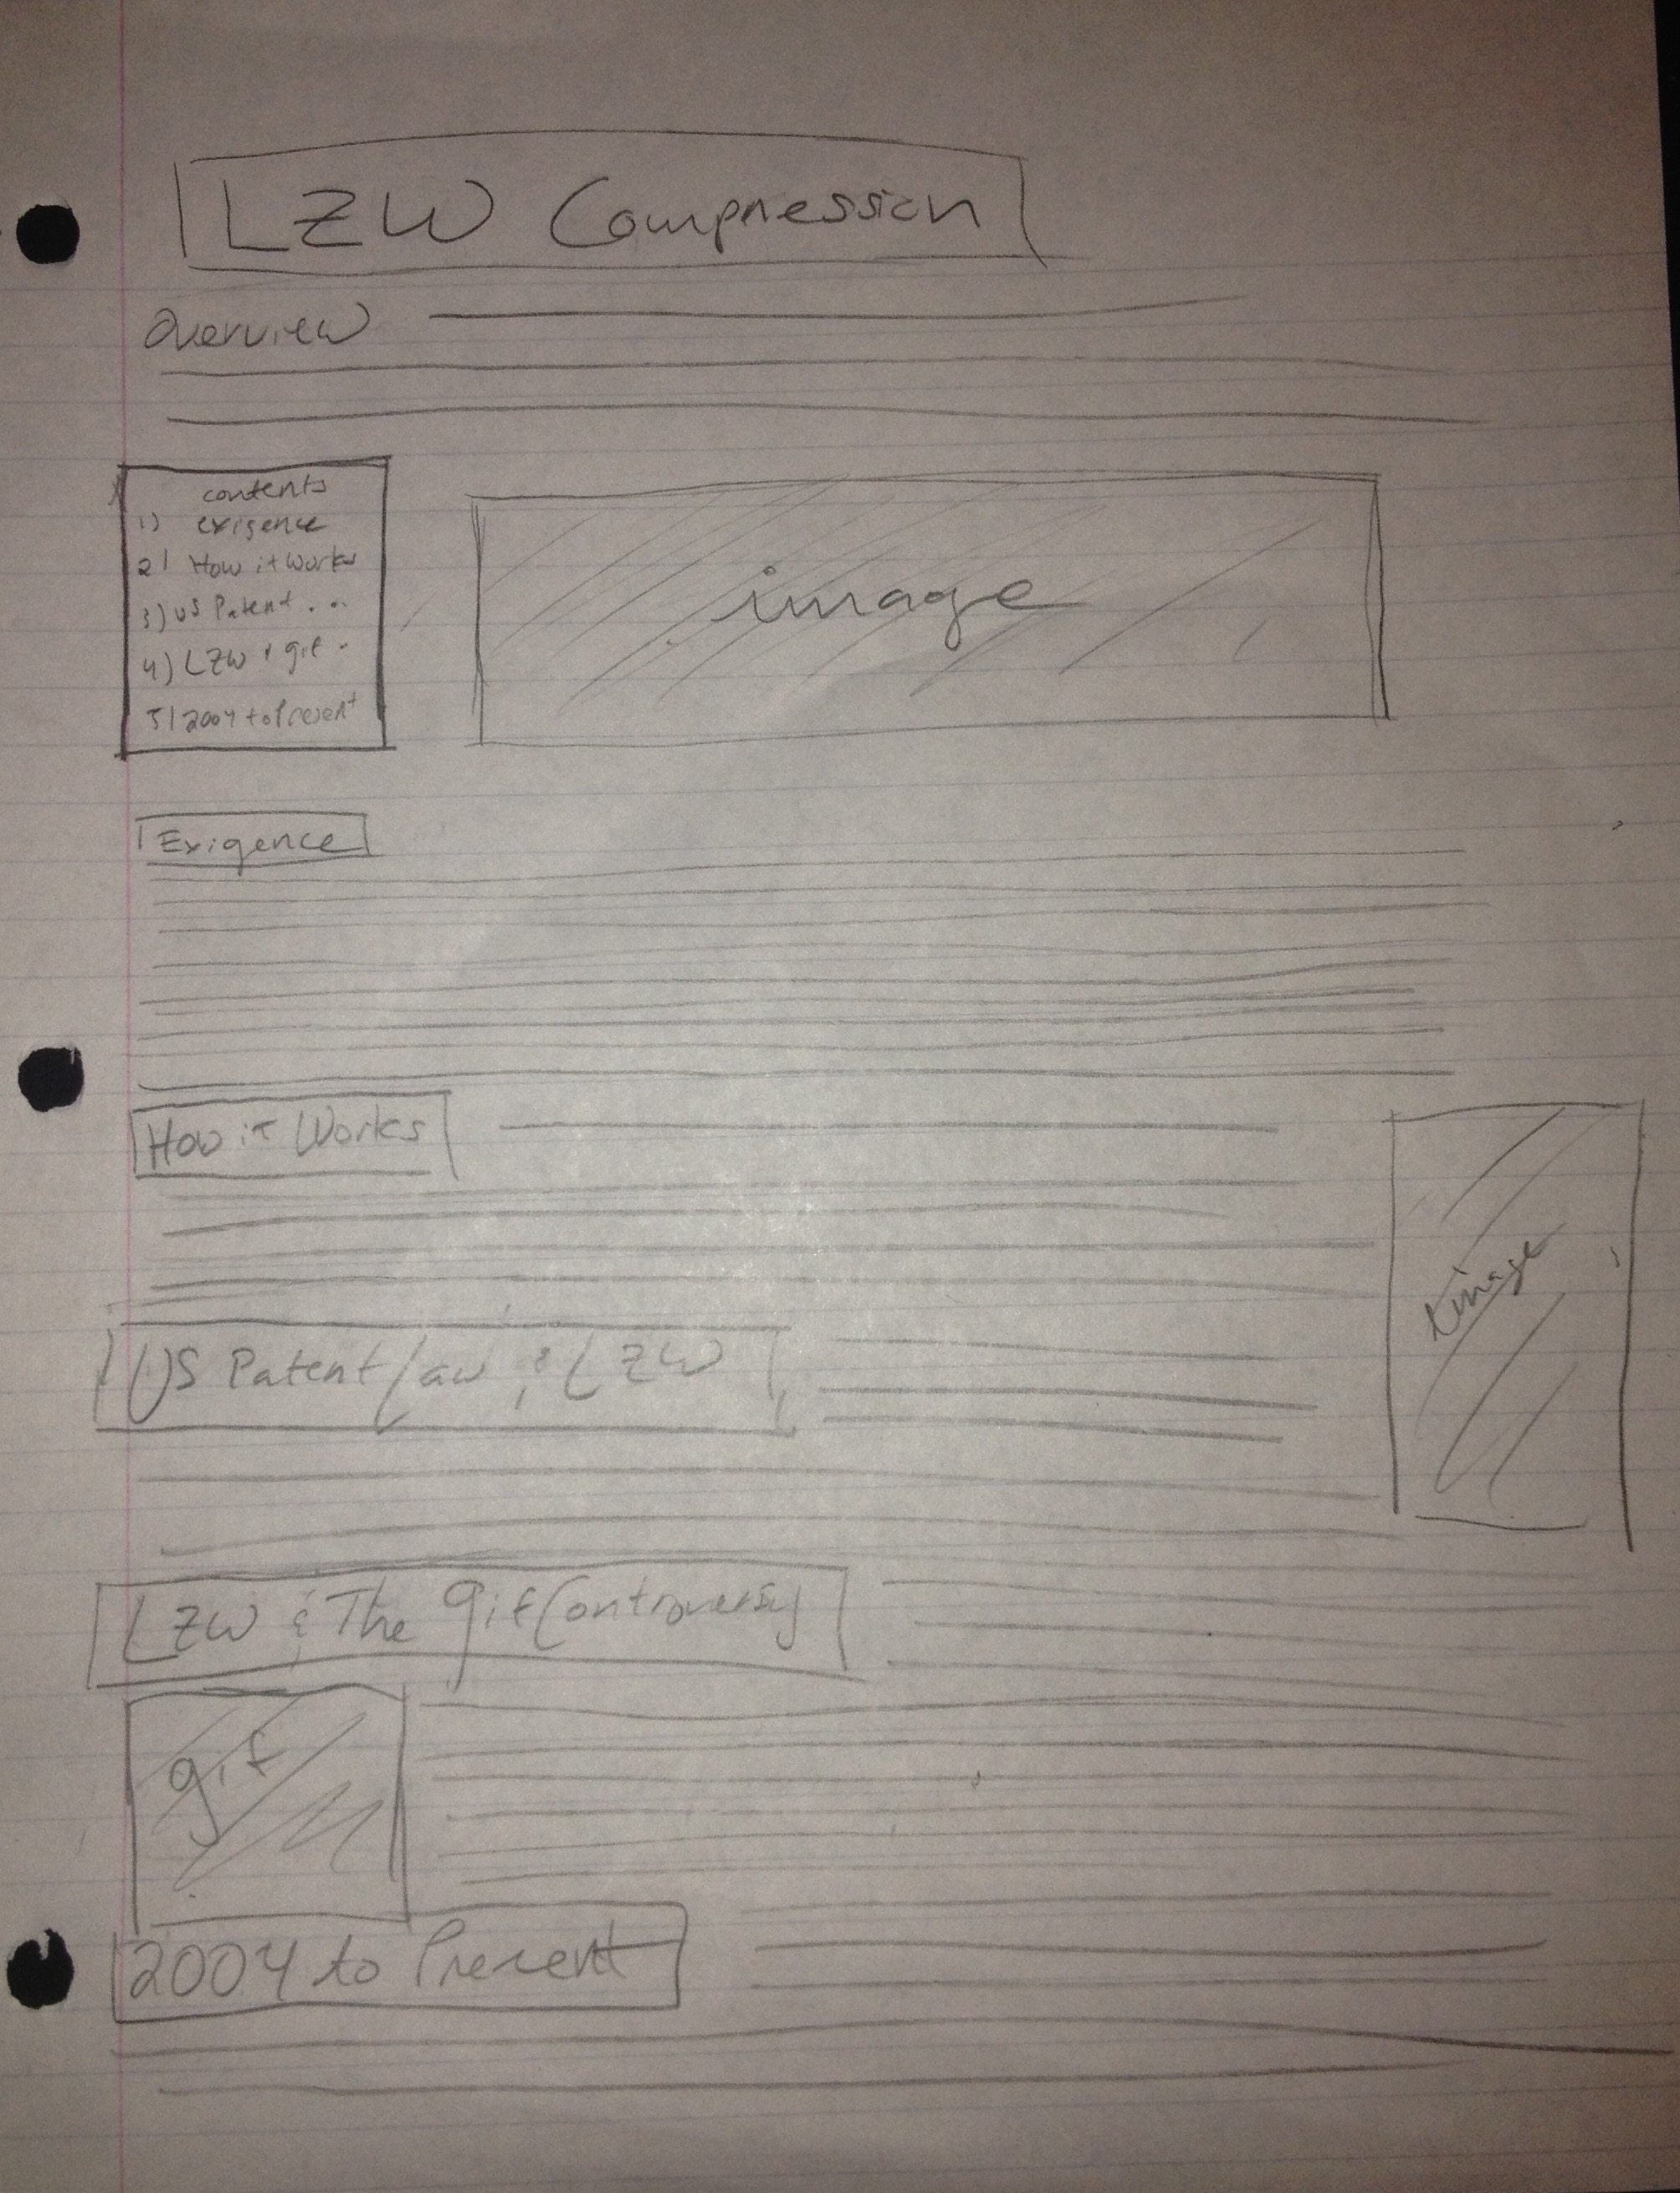 LZW Compression
Overview
contents
1) exigence
2) How it works
3) US Patent . . .
4) LZW & gif .
5) 2004 to Present
image
Exigence
How it Works
image
US Patent Law & LZW
LZW & The gif Controversy
gif
2004 to Present